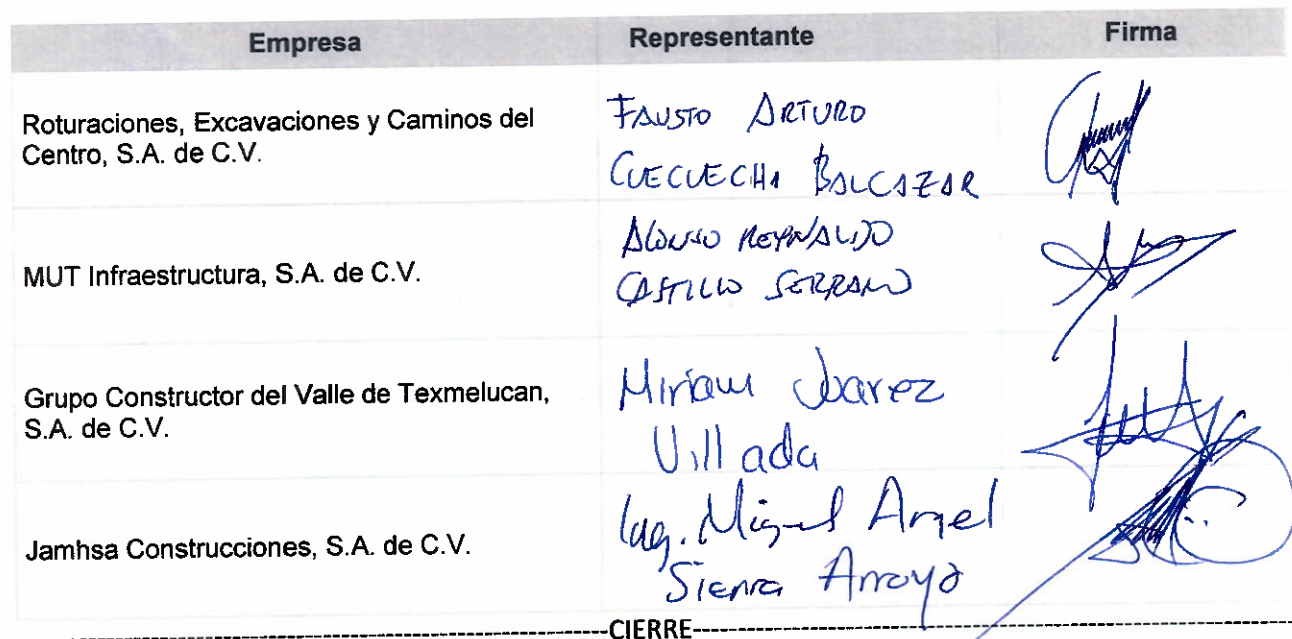 Empresa Representante Firma
Roturaciones, Excavaciones y Caminos del
Centro, S.A. de C.V.
FAUSTO ARTURO
CUECUECHA BALCAZAR
MUT Infraestructura, S.A. de C.V.
ALONSO REYNALDO
CASTILLO SERRANO
Grupo Constructor del Valle de Texmelucan,
S.A. de C.V.
Miriam Juarez
Villada
Jamhsa Construcciones, S.A. de C.V.
Ing. Miguel Angel
Sierra Arroyo
CIERRE